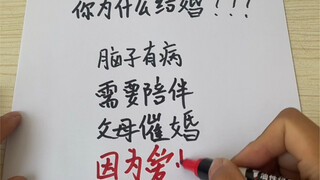 你为什么结婚!!!
脑子有病
需要陪伴
父母催婚
因为爱